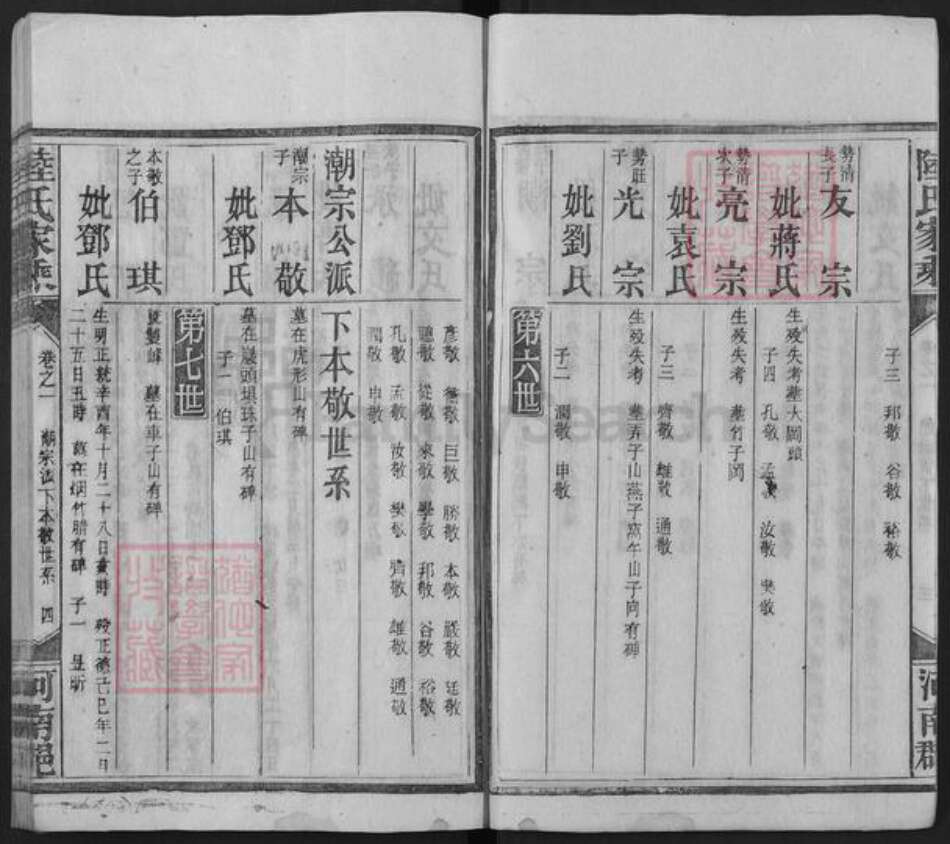 陸氏家乘
河南郡
勢清長子
友宗
子三 邦敬 谷敬 裕敬
妣蔣氏
生歿失考墓大岡頭
子四 孔敬 孟敬 汝敬 樊敬
勢清次子
亮宗
生歿失考 墓竹子岡
妣袁氏
子三 濟敬 雄敬 通敬
勢旺子
光宗
生歿失考 墓弄子山燕子窩午山子向有碑
妣劉氏
子二 潤敬 申敬
第六世
彥敬 巨敬 勝敬 本敬 嚴敬 廷敬
聰敬 從敬 來敬 學敬 邦敬 谷敬 裕敬
孔敬 孟敬 汝敬 樊敬 濟敬 雄敬 通敬
潤敬 申敬
潮宗公派
下本敬世系
潮宗子
本敬
墓在虎形山有碑
妣鄧氏
墓在 頭壩珠子山有碑
子一 伯琪
第七世
本敬之子
伯琪
墓在車子山有碑
妣鄧氏
生明正統辛酉年十月二十八日寅時 歿正德己巳年二月
二十五日丑時 墓在烟竹腊有碑 子一 昱昕
陸氏家乘
卷之一 潮宗派下本敬世系 四
河南邑